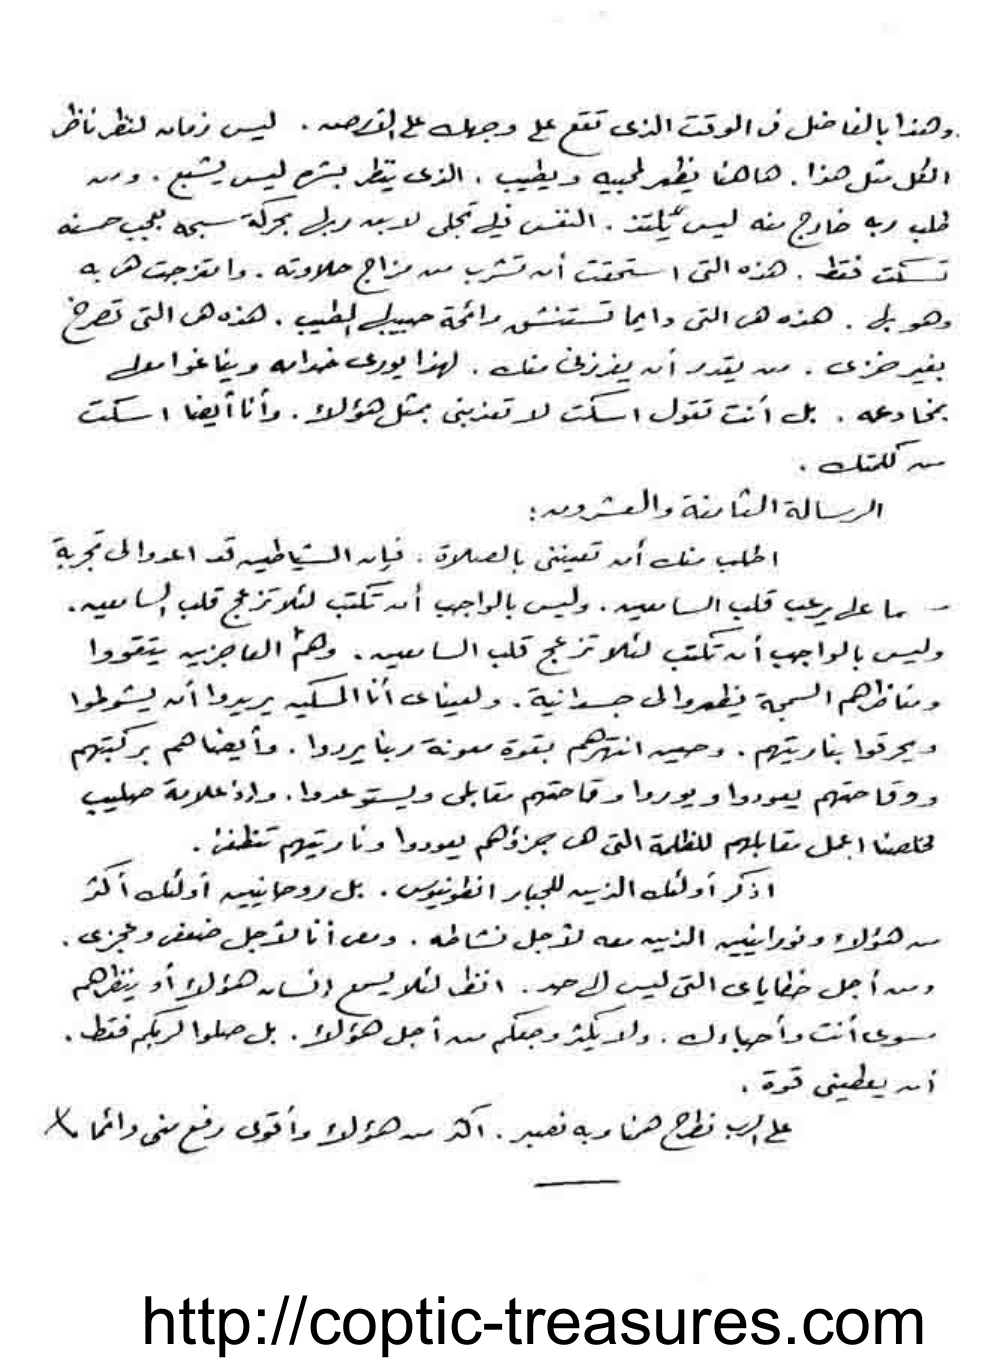 وهذا بالفاضل فى الوقت الذى تقع على وجهك على الارض . ليس زمان لنظر ناظر
الكل مثل هذا . هاهنا يظهر لمحبيه ويطيب . الذى ينظر بشره ليس يشبع . ومن
طلب ربه خارج منه ليس يلتذ . النفس فيك تجلى لابن ربك بحركة سبحه بعجب حسنه
تسكت فقط . هذه التى استحقت أن تشرب من مزاج حلاوته . وامتزجت هى به
وهو بك . هذه هى التى دايما تستنشق رائحة حبيبك الطيب . هذه هى التى تصرخ
بغير خزى . من يقدر أن يفرزنى منك . لهذا يورى خدامه ويناغوا معك
بمخادعه . بل أنت تقول اسكت لا تعذبنى بمثل هؤلاء . وأنا أيضا اسكت
من كلمتك .
الرسالة الثامنة والعشرون :
اطلب منك أن تعيننى بالصلاة . فإن الشياطين قد اعدوا لى تجربة
ما على يرعب قلب السامعين . وليس بالواجب أن تكتب لئلا تزعج قلب السامعين .
وليس بالواجب أن تكتب لئلا تزعج قلب السامعين . وهم العاجزين يتقووا
ومناظرهم السمجة يظهروا لى جسدانية . ولعيناى أنا المسكين يريدوا أن يشوطوا
ويحرقوا بناريتهم . وحين انتهرهم بقوة معونة ربنا يردوا . وأيضا هم بركبتهم
ووقاحتهم يعودوا ويوروا وقاحتهم مقابلى ويستوعدوا . واذ علامة صليب
مخلصنا اعمل مقابلهم للظلمة التى هى جزؤهم يعودوا وناريتهم تنطفئ .
اذكر أولئك الذين للجبار انطونيوس . بل روحانيين أولئك أكثر
من هؤلاء ونورانيين الذين معه لأجل نشاطه . ومعى أنا لأجل ضعفى وعجزى .
ومن أجل خطاياى التى ليس لها حد . انظر لئلا يسمع إنسان هؤلاء أو ينظرهم
سوى أنت وأحباءك . ولا يكثر وجعكم من أجل هؤلاء . بل صلوا لربكم فقط .
أن يعطينى قوة .
على الرب نطرح همنا وبه نصبر . أكثر من هؤلاء وأقوى رفع منى دائما
http://coptic-treasures.com